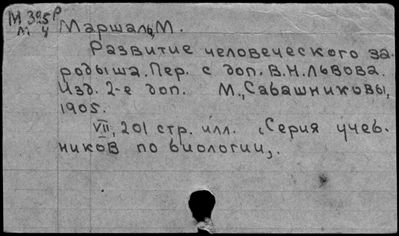 М 325р
М 4
Маршаль, М.
Развитие человеческого за
родыша. Пер. с доп. В.Н. Львова.
Изд. 2-е доп. М., Сабашниковы,
1905.
VII, 201 стр. илл. "Серия учеб-
ников по биологии".